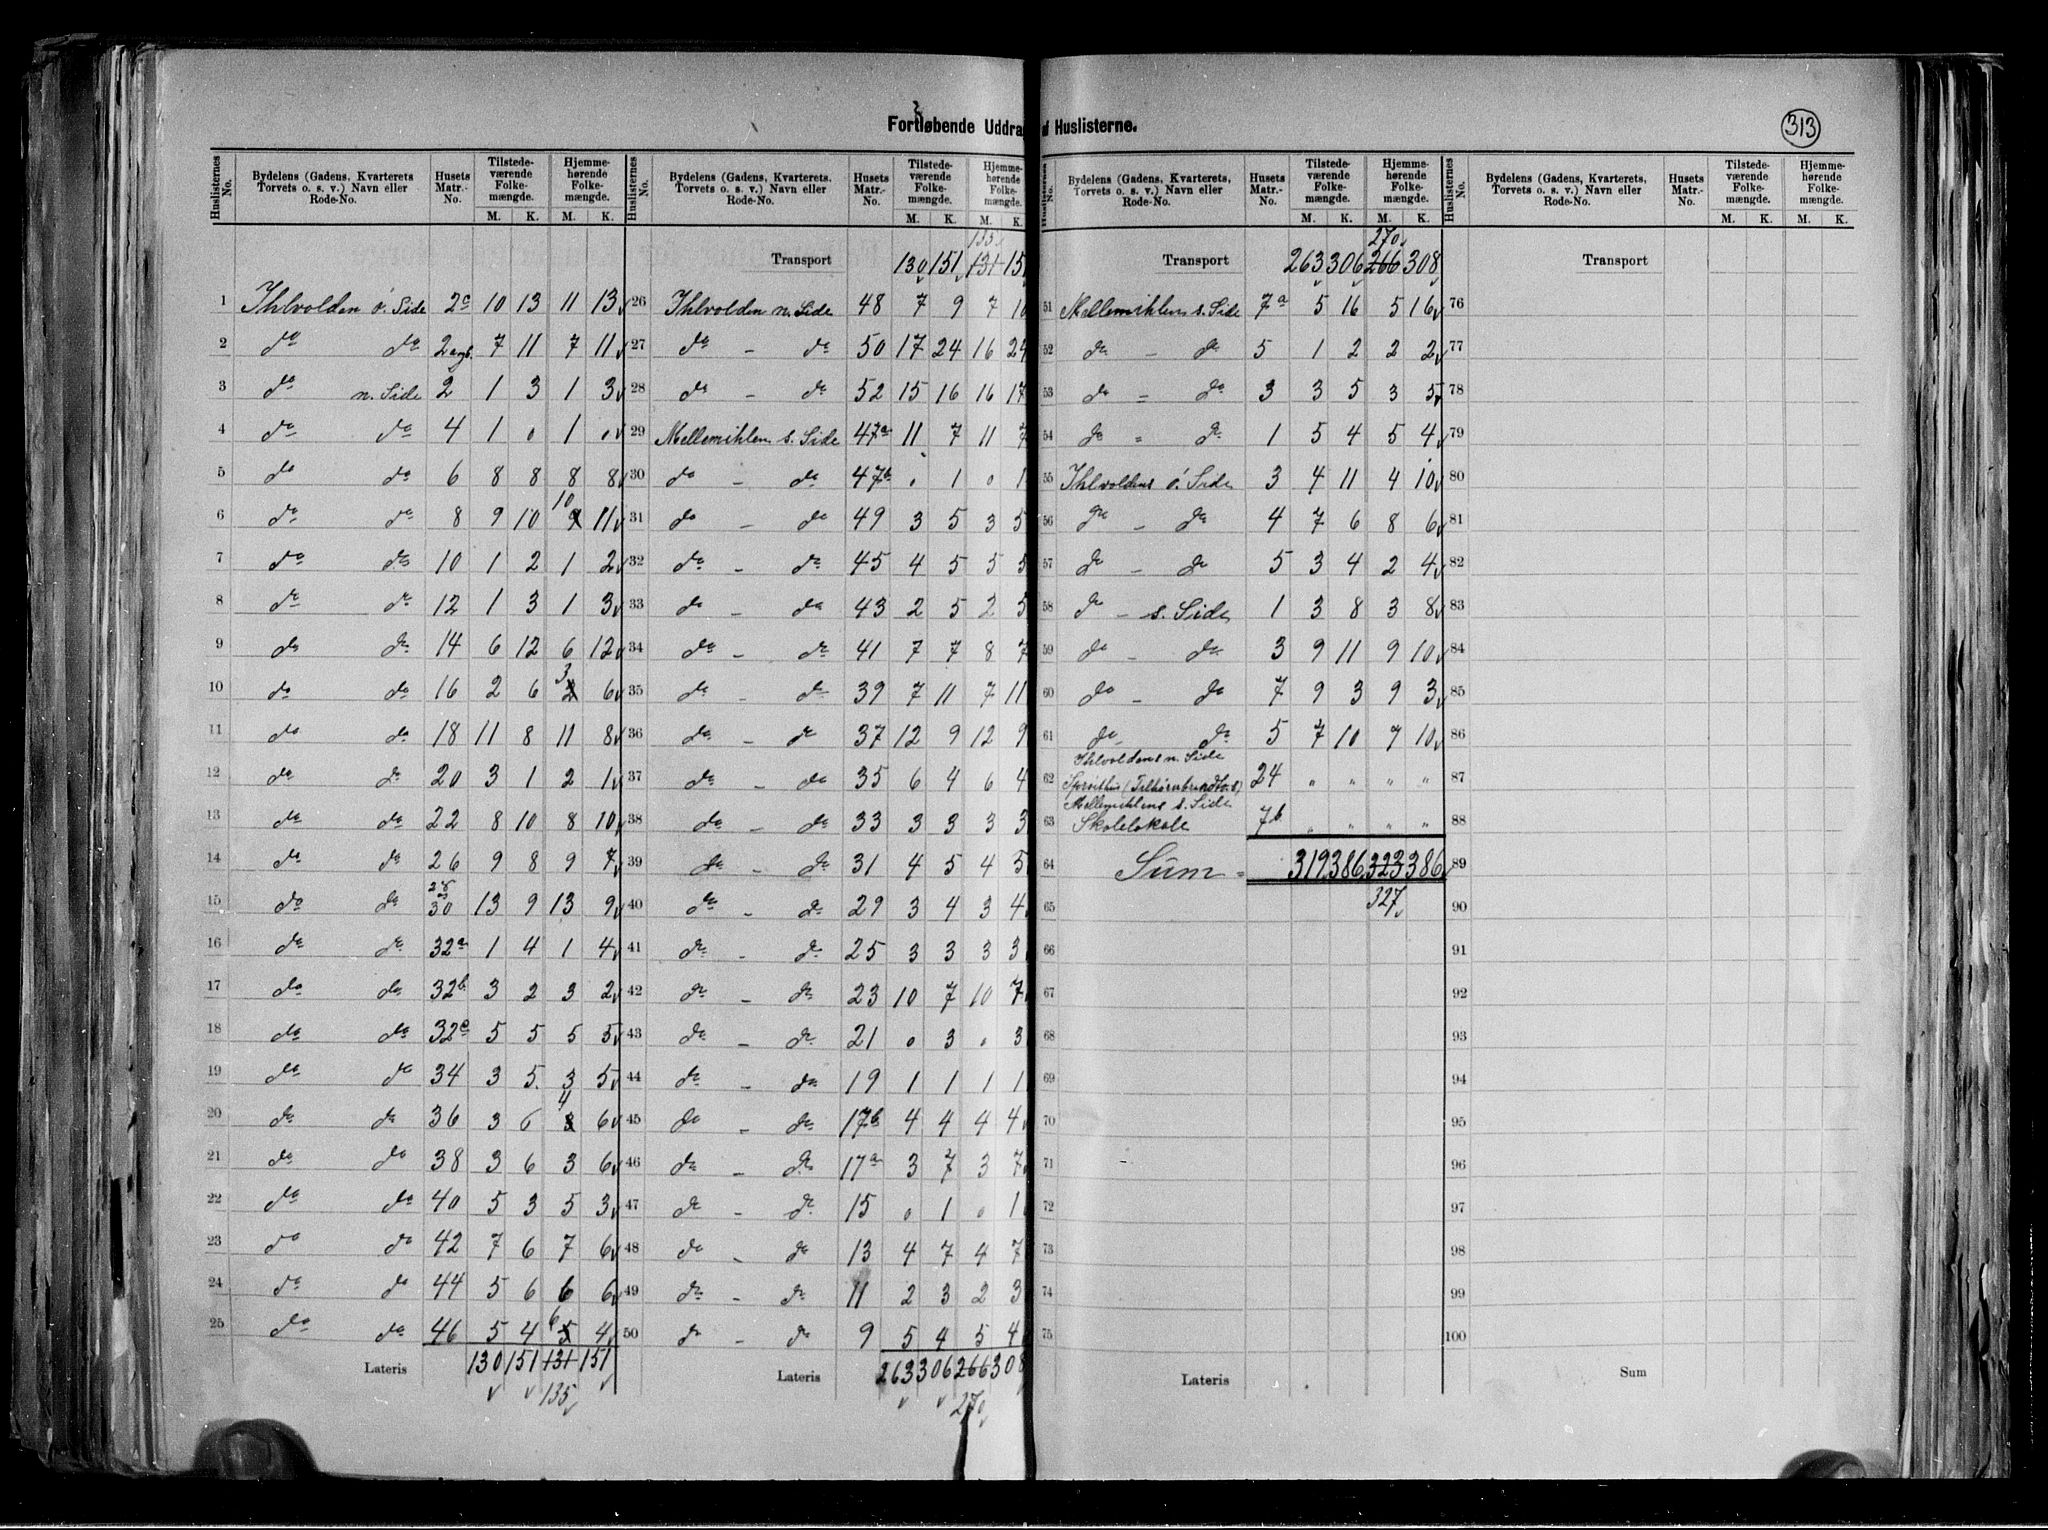 Fortløbende Uddra af Huslisterne.
313
Huslisternes No. | Bydelens (Gadens, Kvarterets, Torvets o. s. v.) Navn eller Rode-No. | Husets Matr.-No. | Tilstedeværende Folkemængde. M. K. | Hjemmehørende Folkemængde. M. K.
1 Ihlvolden ø. Side 2c 10 13 11 13
2 do do 2 7 11 7 11
3 do n. Side 2 1 3 1 3
4 do do 4 1 0 1 0
5 do do 6 8 8 8 8
6 do do 8 9 10 10 11
7 do do 10 1 2 1 2
8 do do 12 1 3 1 3
9 do do 14 6 12 6 12
10 do do 16 2 6 3 6
11 do do 18 11 8 11 8
12 do do 20 3 1 2 1
13 do do 22 8 10 8 10
14 do do 26 9 8 9 7
15 do do 28 30 13 9 13 9
16 do do 32a 1 4 1 4
17 do do 32b 3 2 3 2
18 do do 32c 5 5 5 5
19 do do 34 3 5 3 5
20 do do 36 3 6 4 6
21 do do 38 3 6 3 6
22 do do 40 5 3 5 3
23 do do 42 7 6 7 6
24 do do 44 5 6 6 6
25 do do 46 5 4 6 4
Lateris 130 151 131 151
135
Huslisternes No. | Bydelens (Gadens, Kvarterets, Torvets o. s. v.) Navn eller Rode-No. | Husets Matr.-No. | Tilstedeværende Folkemængde. M. K. | Hjemmehørende Folkemængde. M. K.
135
Transport 130 151 131 15
26 Ihlvolden n. Side 48 7 9 7 10
27 do - do 50 17 24 16 24
28 do - do 52 15 16 16 17
29 Mellemihlen s. Side 47a 11 7 11 7
30 do - do 47b 0 1 0 1
31 do - do 49 3 5 3 5
32 do - do 45 4 5 5 5
33 do - do 43 2 5 2 5
34 do - do 41 7 7 8 7
35 do - do 39 7 11 7 11
36 do - do 37 12 9 12 9
37 do - do 35 6 4 6 4
38 do - do 33 3 3 3 3
39 do - do 31 4 5 4 5
40 do - do 29 3 4 3 4
41 do - do 25 3 3 3 3
42 do - do 23 10 7 10 7
43 do - do 21 0 3 0 3
44 do - do 19 1 1 1 1
45 do - do 17b 4 4 4 4
46 do - do 17a 3 7 3 7
47 do - do 15 0 1 0 1
48 do - do 13 4 7 4 7
49 do - do 11 2 3 2 3
50 do - do 9 5 4 5 4
Lateris 263 306 266 308
270
Huslisternes No. | Bydelens (Gadens, Kvarterets, Torvets o. s. v.) Navn eller Rode-No. | Husets Matr.-No. | Tilstedeværende Folkemængde. M. K. | Hjemmehørende Folkemængde. M. K.
270
Transport 263 306 266 308
51 Mellemihlens s. Side 7a 5 16 5 16
52 do - do 5 1 2 2 2
53 do = do 3 3 5 3 5
54 do = do 1 5 4 5 4
55 Ihlvoldens ø. Side 3 4 11 4 10
56 do - do 4 7 6 8 6
57 do - do 5 3 4 2 4
58 do - s. Side 1 3 8 3 8
59 do - do 3 9 11 9 10
60 do - do 7 9 3 9 3
61 do do 5 7 10 7 10
Ihlvoldens n. Side
62 24 " " " "
Mellemihlens s. Side
63 Skolelokale 7b " " " "
64 Sum = 319 386 323 386
65 327
66
67
68
69
70
71
72
73
74
75
Lateris
Huslisternes No. | Bydelens (Gadens, Kvarterets, Torvets o. s. v.) Navn eller Rode-No. | Husets Matr.-No. | Tilstedeværende Folkemængde. M. K. | Hjemmehørende Folkemængde. M. K.
Transport
76
77
78
79
80
81
82
83
84
85
86
87
88
89
90
91
92
93
94
95
96
97
98
99
100
Sum